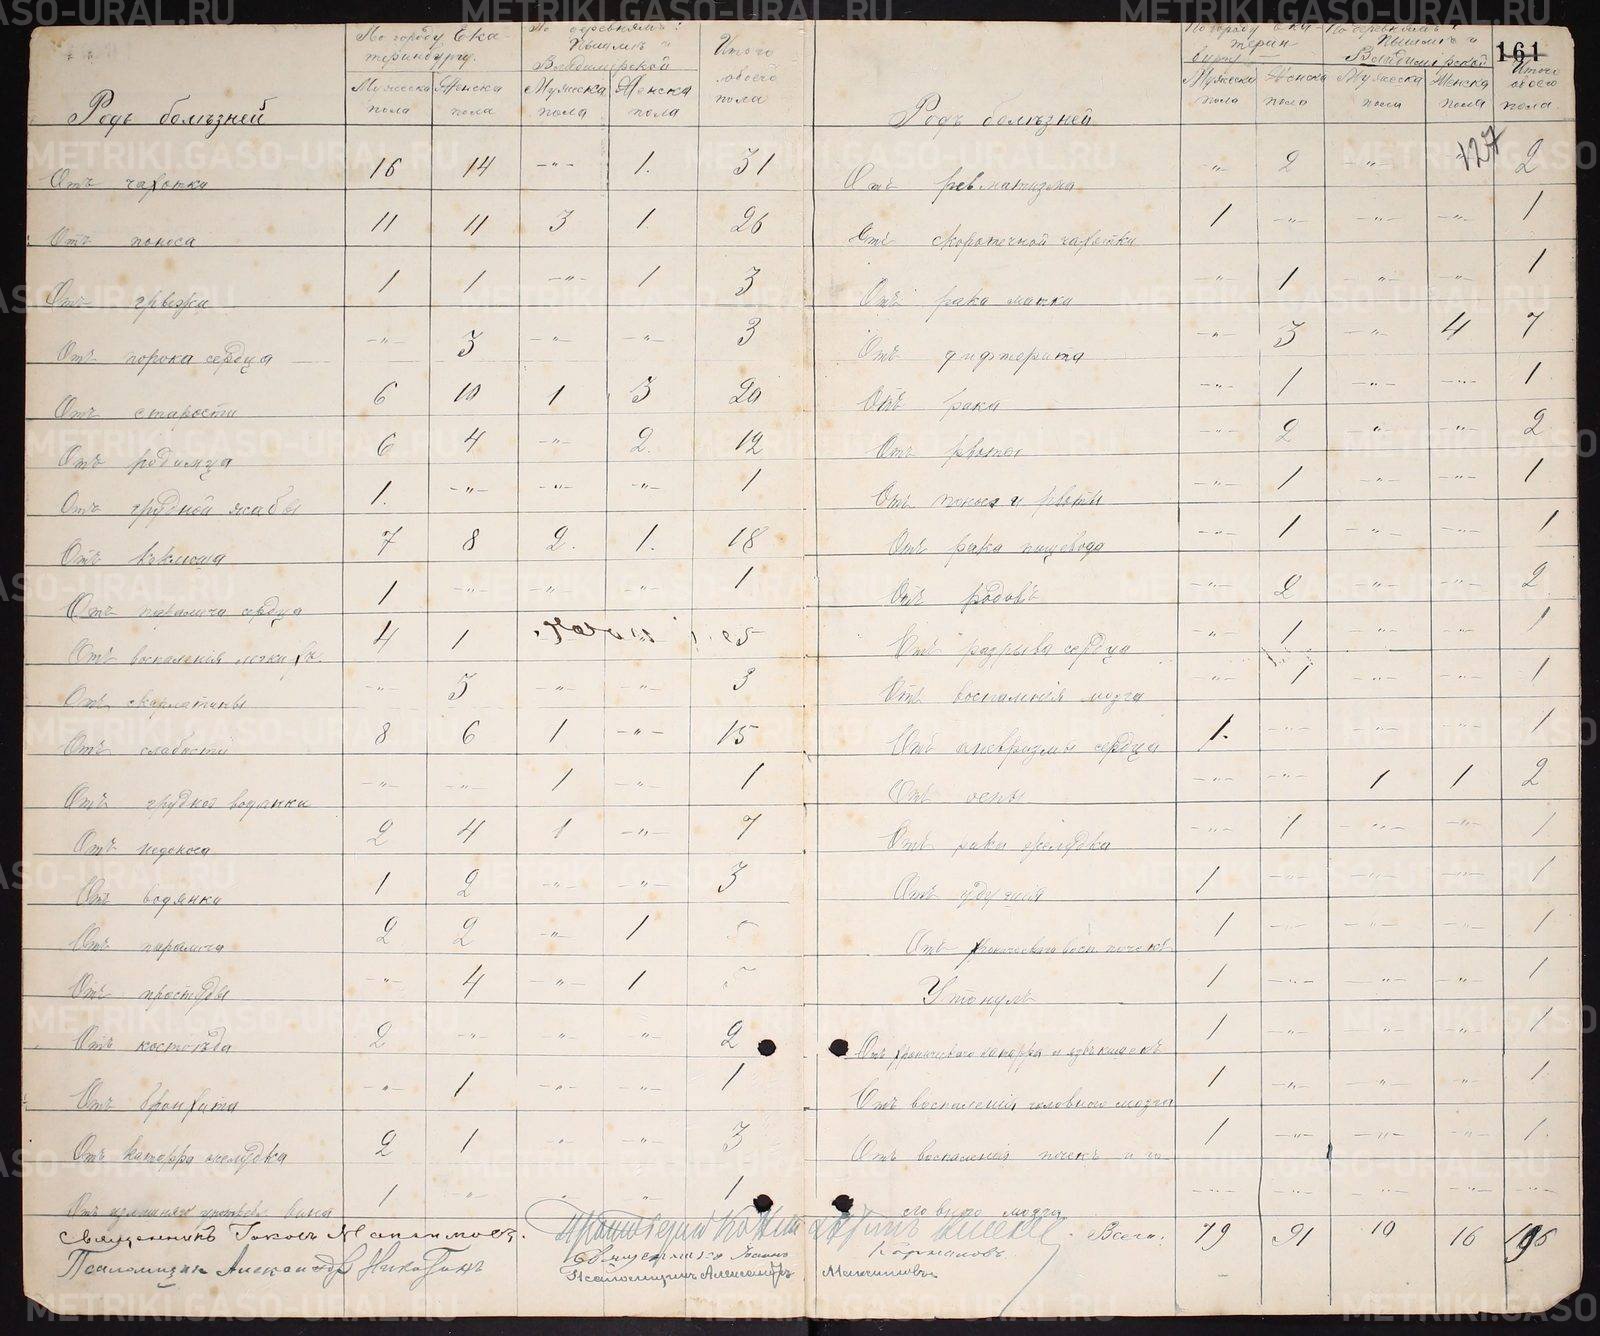 Родъ болѣзней | По городу Екатеринбургу. Мужеска пола | Женска пола | По деревнямъ: Пышмѣ и Владимірской Мужеска пола | Женска пола | Итого обоего пола
Отъ чахотки 16 14 -"- 1. 31
Отъ поноса 11 11 3 1. 26
Отъ грыжи 1 1 -"- 1 3
Отъ порока сердца -"- 3 -"- -"- 3
Отъ старости 6 10 1 3 20
Отъ родимца 6 4 -"- 2. 12
Отъ грудной жабы 1. -"- -"- -"- 1
Отъ коклюша 7 8 2. 1. 18
Отъ паралича сердца 1 -"- -"- -"- 1
Отъ воспаленія легкихъ 4 1 5
Отъ скарлатины -"- 3 -"- -"- 3
Отъ слабости 8 6 1 -"- 15
Отъ грудной водянки -"- -"- 1 -"- 1
Отъ недоноса 2 4 1 -"- 7
Отъ водянки 1 2 -"- -"- 3
Отъ паралича 2 2 -"- 1 5
Отъ простуды -"- 4 -"- 1 5
Отъ костоѣда 2 -"- " " 2
Отъ бронхита -"- 1 -"- -"- 1
Отъ катарра желудка 2 1 -"- -"- 3
Отъ излишняго употребл. вина 1 -"- " " 1
Священникъ
Псаломщикъ Александръ
161
127
Родъ болѣзней | По городу Екатеринбургу Мужеска пола | Женска пола | По деревнямъ Пышмѣ и Владимірской Мужеска пола | Женска пола | Итого обоего пола.
Отъ ревматизма -"- 2 -"- -"- 2
Отъ скоротечной чахотки 1 -"- -"- -"- 1
Отъ рака матки -"- 1 -"- -"- 1
Отъ дифтерита -"- 3 -"- 4 7
Отъ рака -"- 1 -"- -"- 1
Отъ рвоты -"- 2 -"- -"- 2
Отъ поноса и рвоты -"- 1 -"- -"- 1
Отъ рака пищевода -"- 1 -"- -"- 1
Отъ родовъ -"- 2 -"- -"- 2
Отъ разрыва сердца -"- 1 -"- -"- 1
Отъ воспаленія мозга -"- 1 -"- -"- 1
Отъ аневризмы сердца 1. -"- -"- -"- 1
Отъ оспы -"- -"- 1 1 2
Отъ рака желудка -"- 1 -"- -"- 1
Отъ удушья 1 -"- -"- -"- 1
Отъ хроническаго восп. почекъ 1 -"- -"- -"- 1
Утонулъ 1 -"- -"- -"- 1
Отъ хроническаго катарра и язвъ кишекъ 1 -"- -"- -"- 1
Отъ воспаленія головного мозга 1 -"- -"- -"- 1
Отъ воспаленія почекъ и го- 1 -"- -"- -"- 1.
ловного мозга
Всего: 79 91 10 16 196
Священникъ Іоаннъ
Псаломщикъ Александръ
METRIKI.GASO-URAL.RU